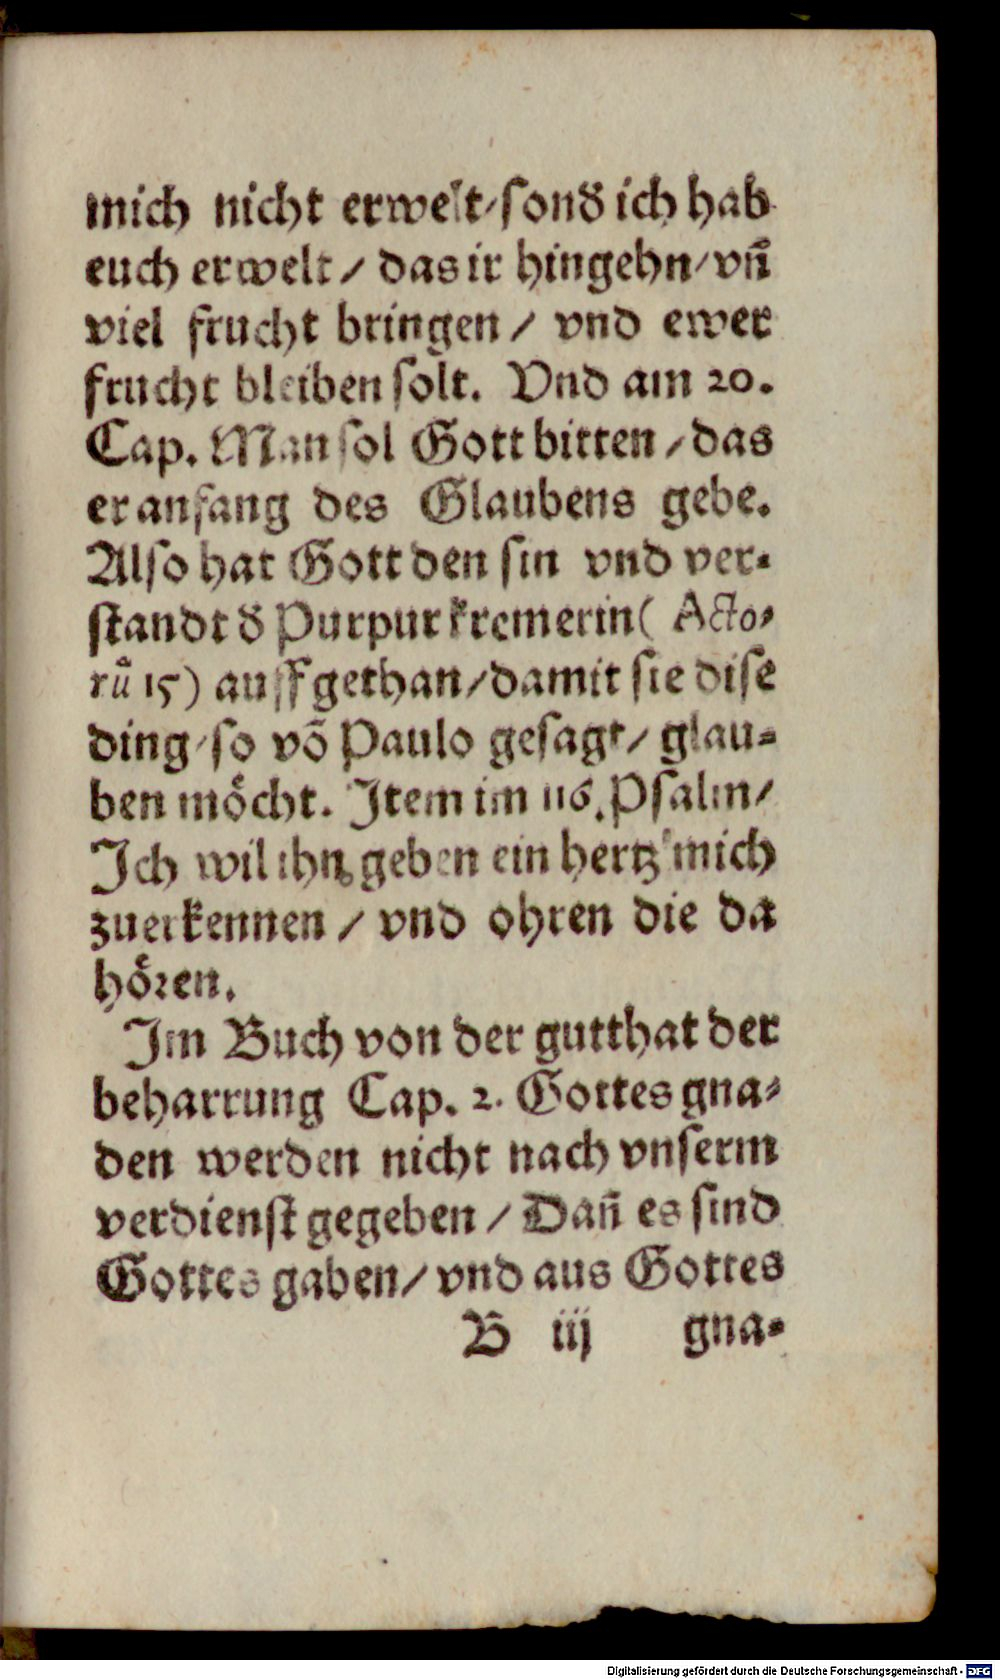 mich nicht erwelt/sond̃ ich hab
euch erwelt / das ir hingehn/vñ
viel frucht bringen / vnd ewer
frucht bleiben solt. Vnd am 20.
Cap. Man sol Gott bitten / das
er anfang des Glaubens gebe.
Also hat Gott den sin vnd ver-
standt d̃ Purpurkremerin( Acto-
rů 15) auffgethan/damit sie dise
ding/so võ Paulo gesagt/ glau-
ben möcht. Item im 116. Psalm/
Ich wil ihnẽ geben ein hertz mich
zuerkennen / vnd ohren die da
hören.
Im Buch von der gutthat der
beharrung Cap. 2. Gottes gna-
den werden nicht nach vnserm
verdienst gegeben / Dañ es sind
Gottes gaben/ vnd aus Gottes
B iij gna-
Digitalisierung gefördert durch die Deutsche Forschungsgemeinschaft - DFG